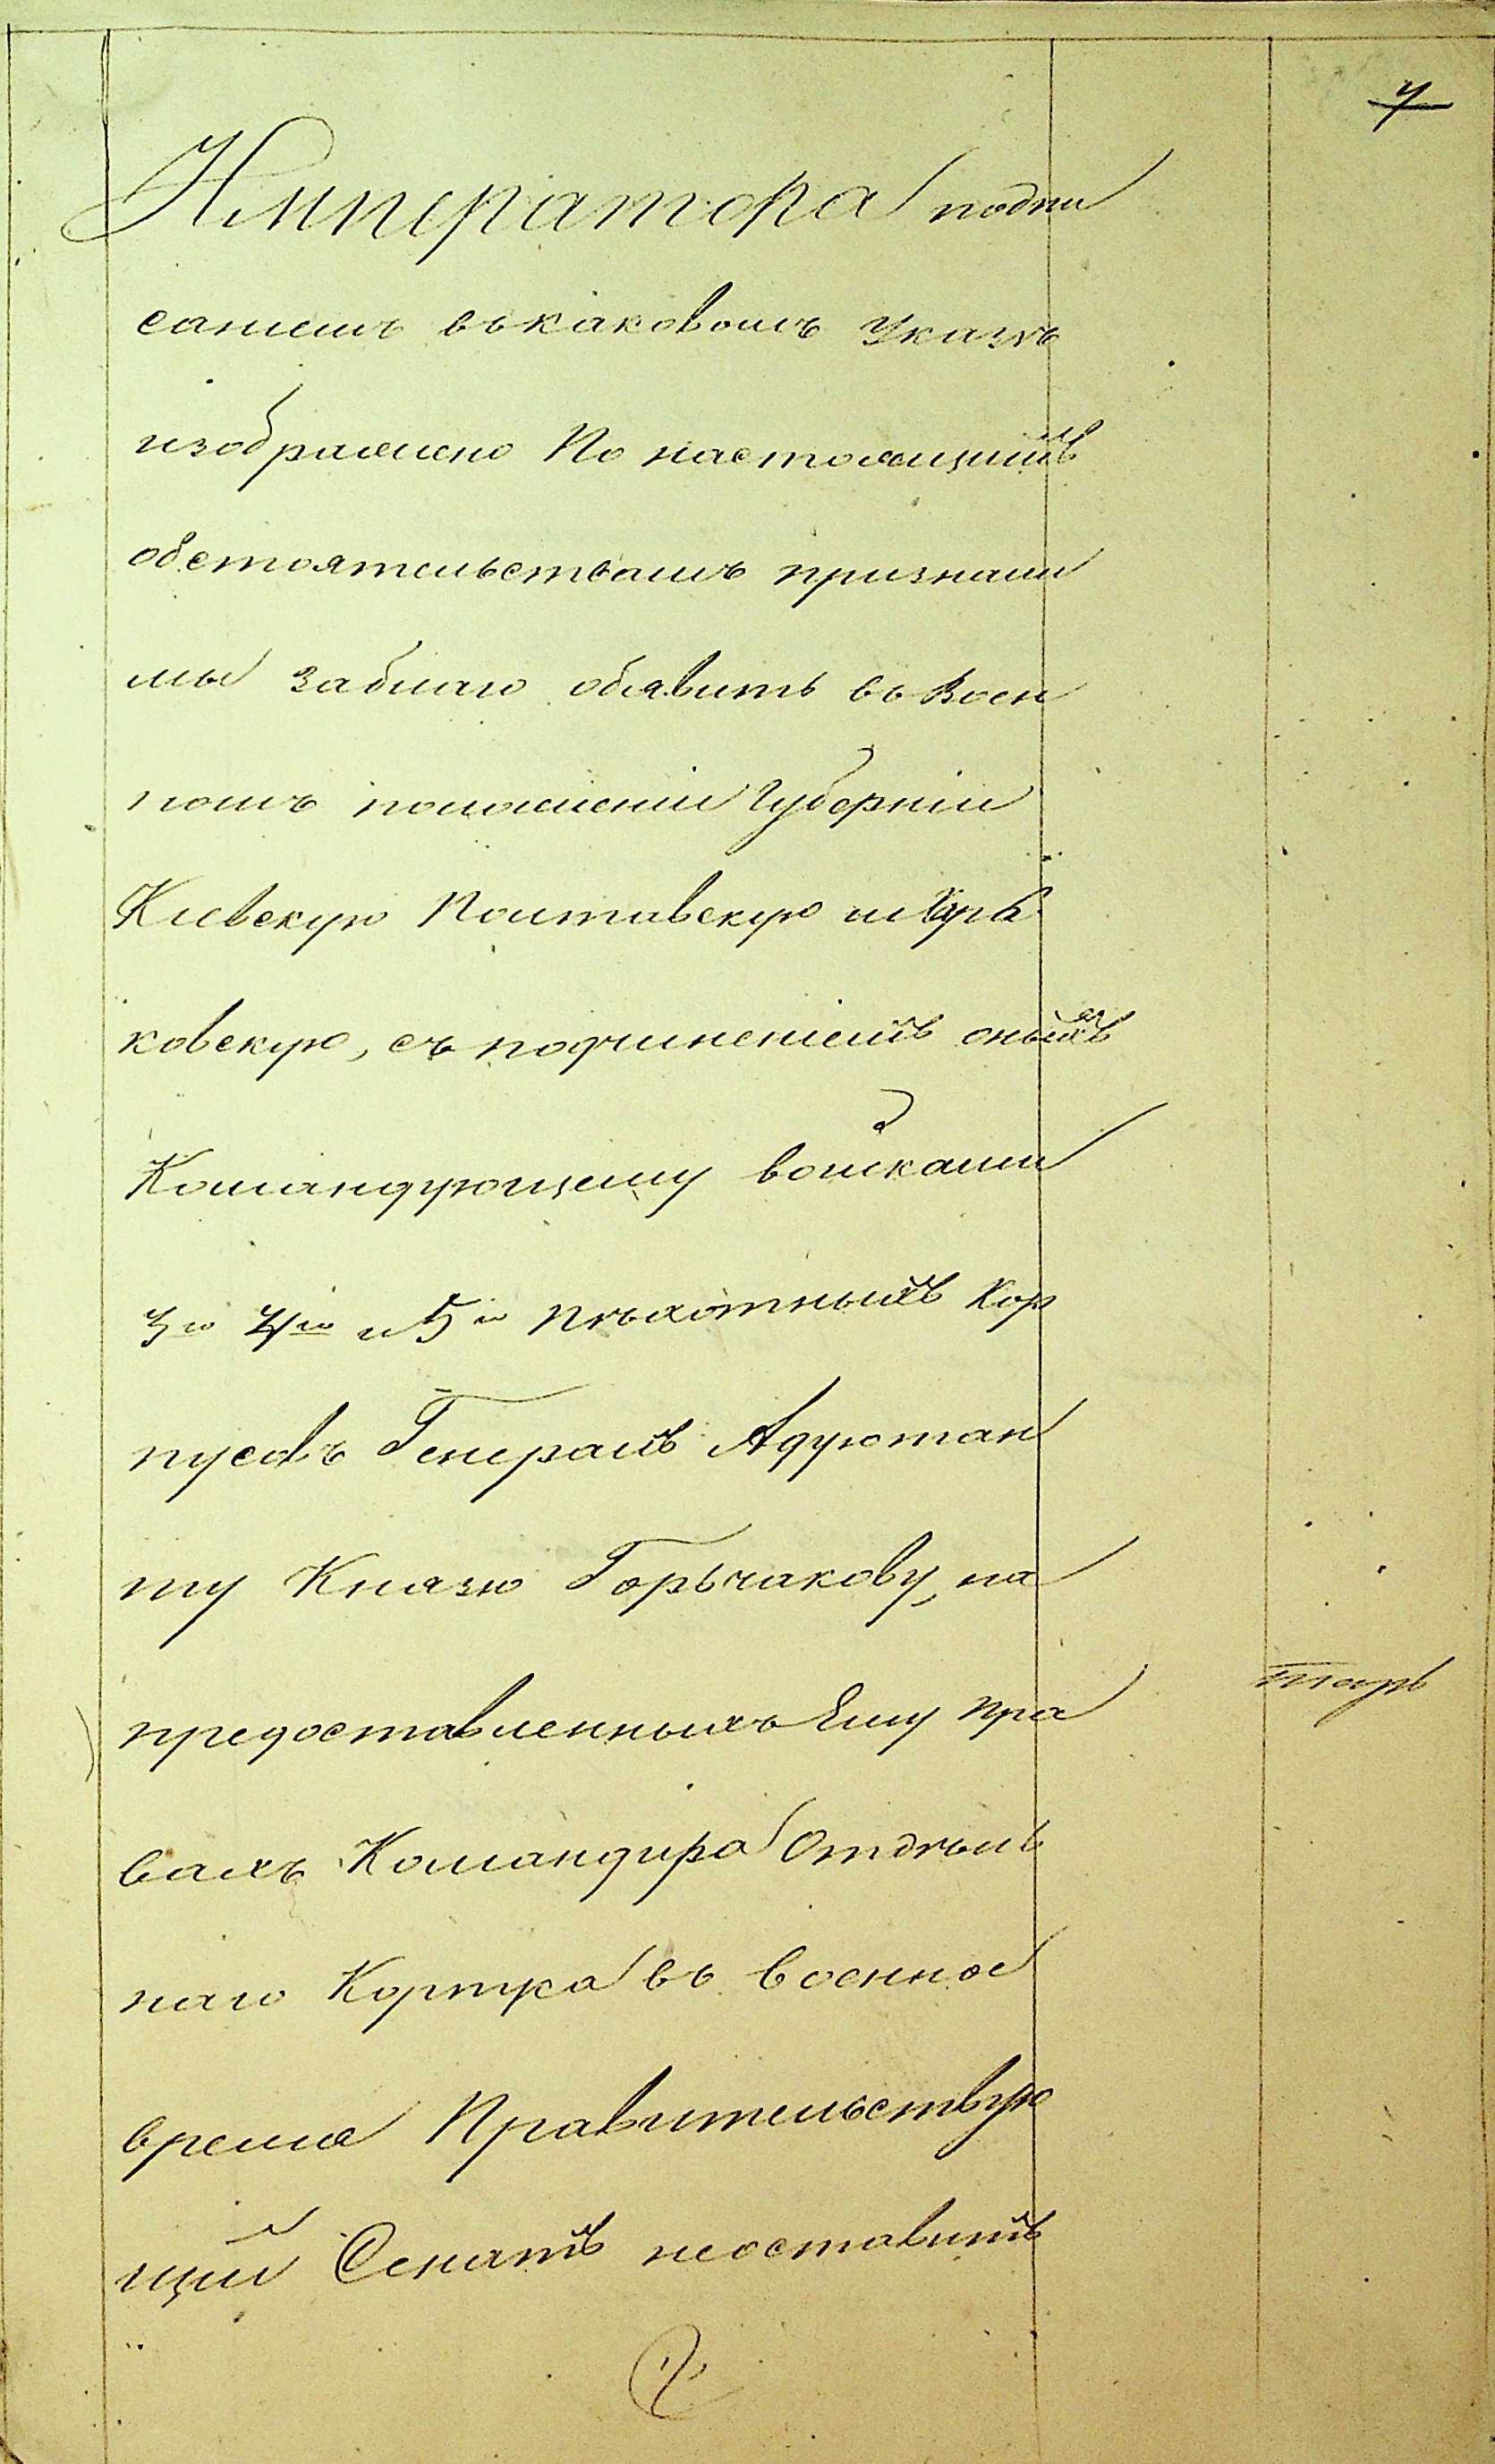 Императора подпи
саніемъ въ каковомъ Указѣ
изображено По настоящимъ
обстоятельствамъ признали
мы заблаго обявить въ воен
номъ положеніи Губерніи
Кіевскую Полтавскую и Харь
ковскую, съ подчиненіемъ оныхъ
Командующему войсками
3го 4го и 5го Пѣхотныхъ Кор
пусовъ Генералъ Адъютан
ту Князю Горьчакову, на
предоставленныхъ Ему пра
вахъ Командира Отдѣль
наго Корпуса въ военное
время Правительствую
щій Сенатъ неоставитъ